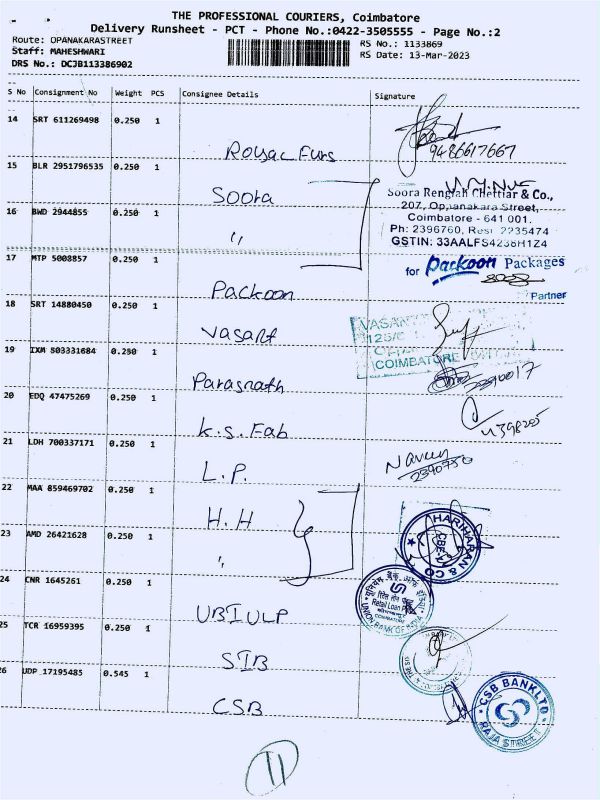 THE PROFESSIONAL COURIERS, Coimbatore
Delivery Runsheet - PCT - Phone No.:0422-3505555 - Page No.:2
Route: OPANAKARASTREET
Staff: MAHESHWARI
DRS No.: DCJB113386902
RS No.: 1133869
RS Date: 13-Mar-2023
S No Consignment No Weight PCS Consignee Details Signature
14 SRT 611269498 0.250 1
Royac Furs
9486617667
15 BLR 2951796535 0.250 1
Soora
Soora Rengiah Chettiar & Co.,
207, Oppanakara Street,
Coimbatore - 641 001.
Ph: 2396760, Resi 2235474
GSTIN: 33AALFS4238H1Z4
16 BWD 2944855 0.250 1
"
17 MTP 5008857 0.250 1
Packoon
for Packoon Packages
Partner
18 SRT 14880450 0.250 1
Vasant
VASANT
COIMBATORE
19 IXM 503331684 0.250 1
Parasnath
2390017
20 EDQ 47475269 0.250 1
K.S. Fab
21 LDH 700337171 0.250 1
L.P.
Naveen
2390750
22 MAA 859469702 0.250 1
H.H
HARIHARAN & CO
CBE-1
23 AMD 26421628 0.250 1
"
24 CNR 1645261 0.250 1
UBIULP
यूनियन बैंक ऑफ इंडिया
Retail Loan Point
COIMBATORE
UNION BANK OF INDIA
25 TCR 16959395 0.250 1
SIB
26 UDP 17195485 0.545 1
CSB
CSB BANK LTD
RAJA STREET
11